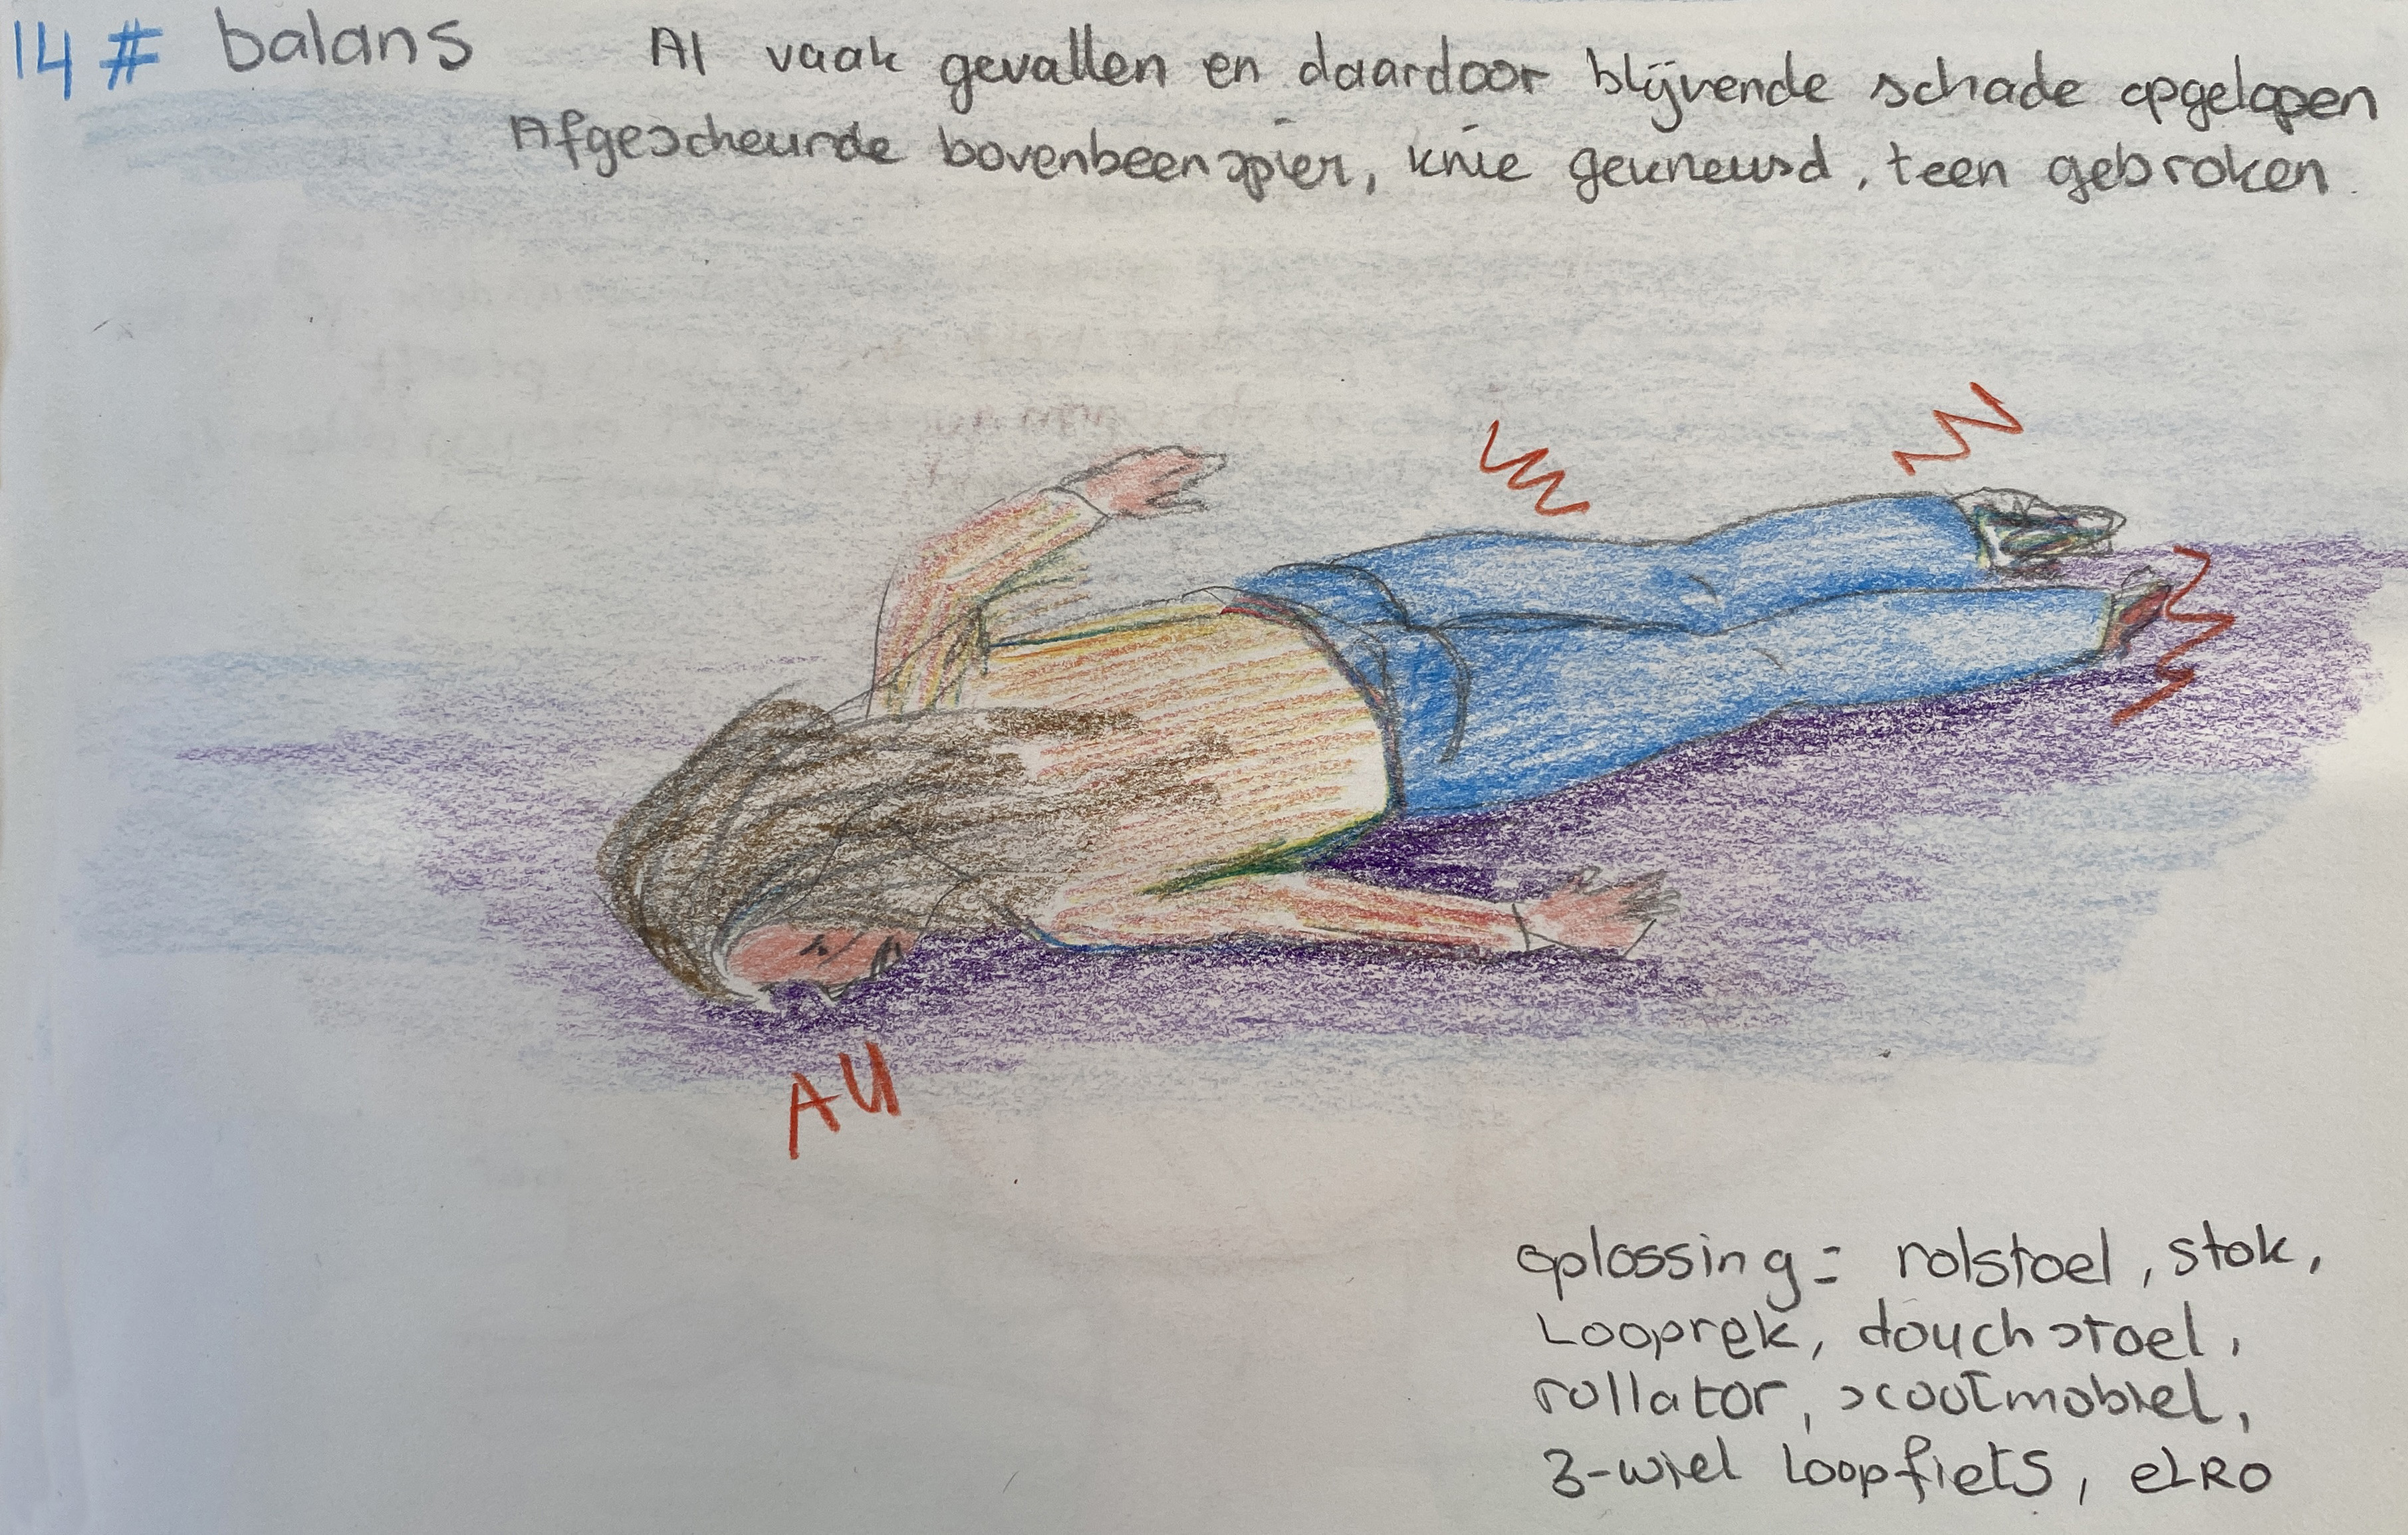 14 # balans Al vaak gevallen en daardoor blijvende schade opgelopen
Afgescheurde bovenbeenspier, knie gekneusd, teen gebroken.
AU
oplossing = rolstoel, stok,
Looprek, douchstoel,
rollator, scootmobiel,
3-wiel loopfiets, eLRO